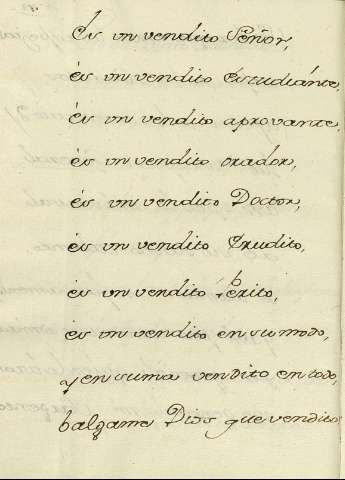 Es un vendito Señor,
és un vendito Estudiánte,
és un vendito aprovante,
és un vendito orador,
és un vendito Doctor,
és un vendito Erudito,
és un vendito perito,
és un vendito en su modo,
y en suma vendito en todo,
balgame Dios que vendito